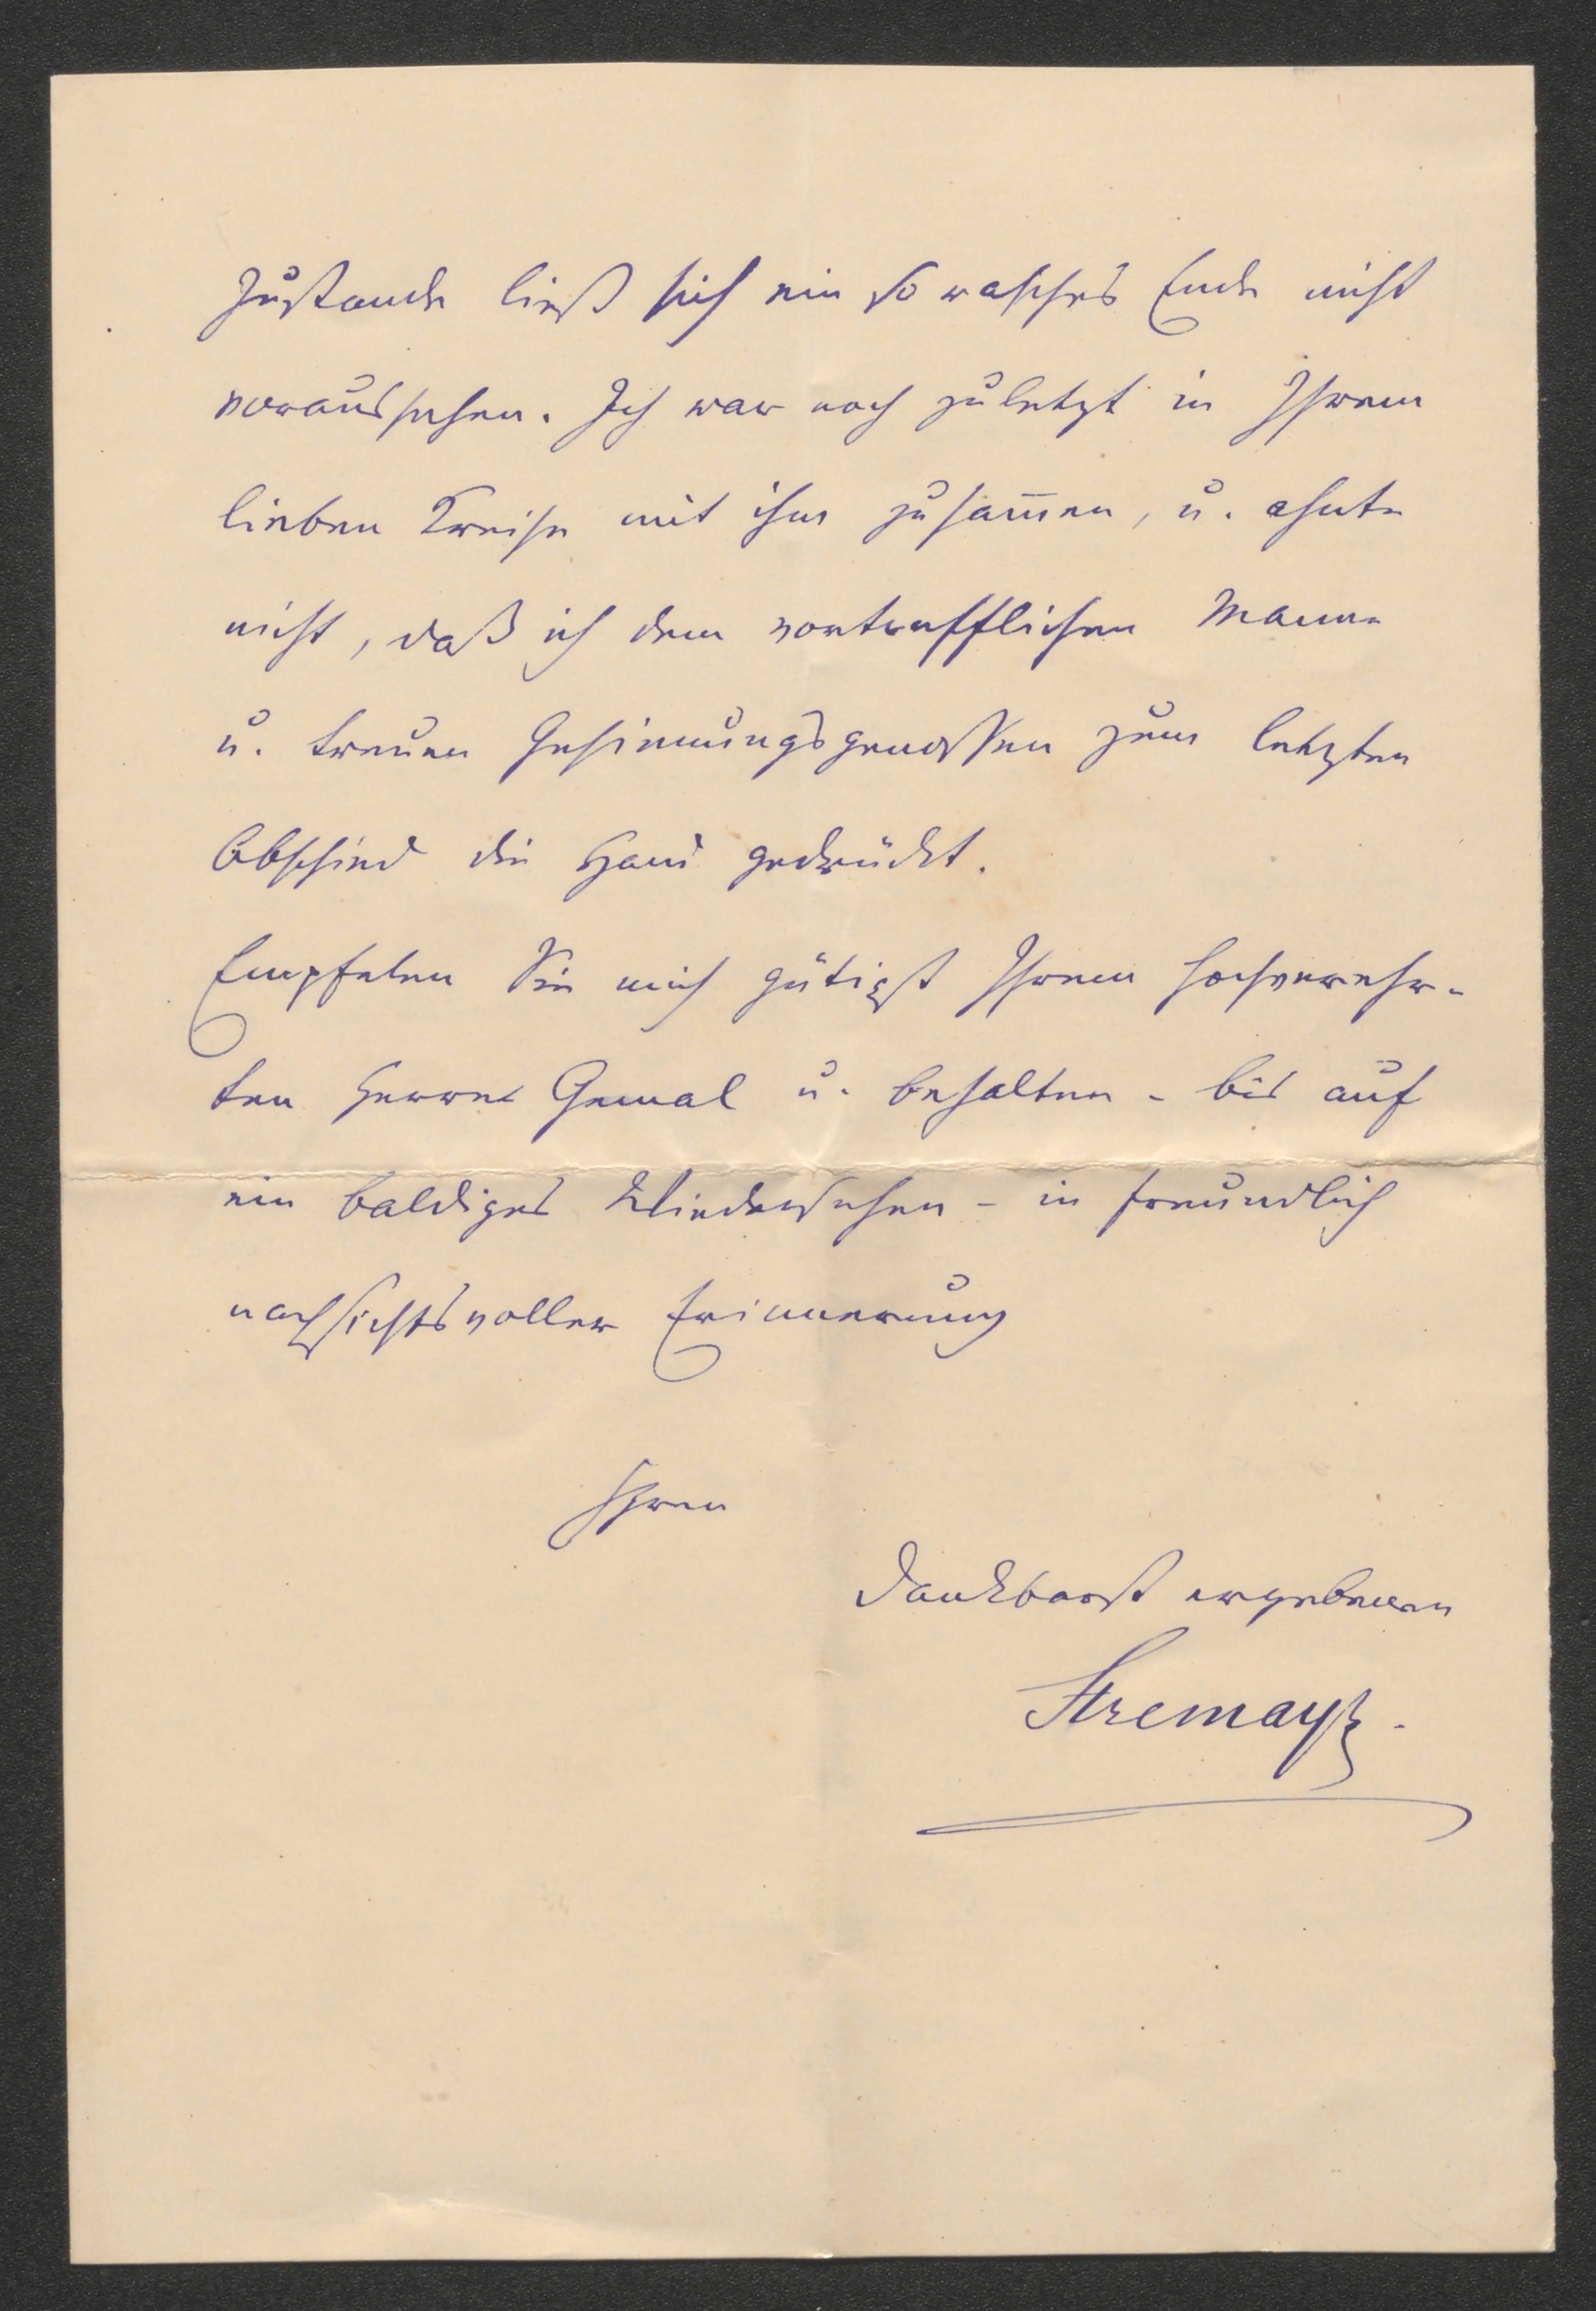 Zustande ließ sich ein so rasches Ende nicht
voraussehen. Ich war noch zuletzt in Ihrem
lieben Kreise mit ihm zusam̄en, u. ahnte
nicht, daß ich dem vortrefflichen Manne
u. treuen Gesinnungsgenossen zum letzten
Abschied die Hand gedrückt.
Empfelen Sie mich gütigst Ihrem hochverehr-
ten Herrn Gemal u. behalten - bis auf
ein baldiges Wiedersehen - in freundlich
nachsichtsvoller Erinnerung
Ihren
dankbarst ergebenen
Stremayr.